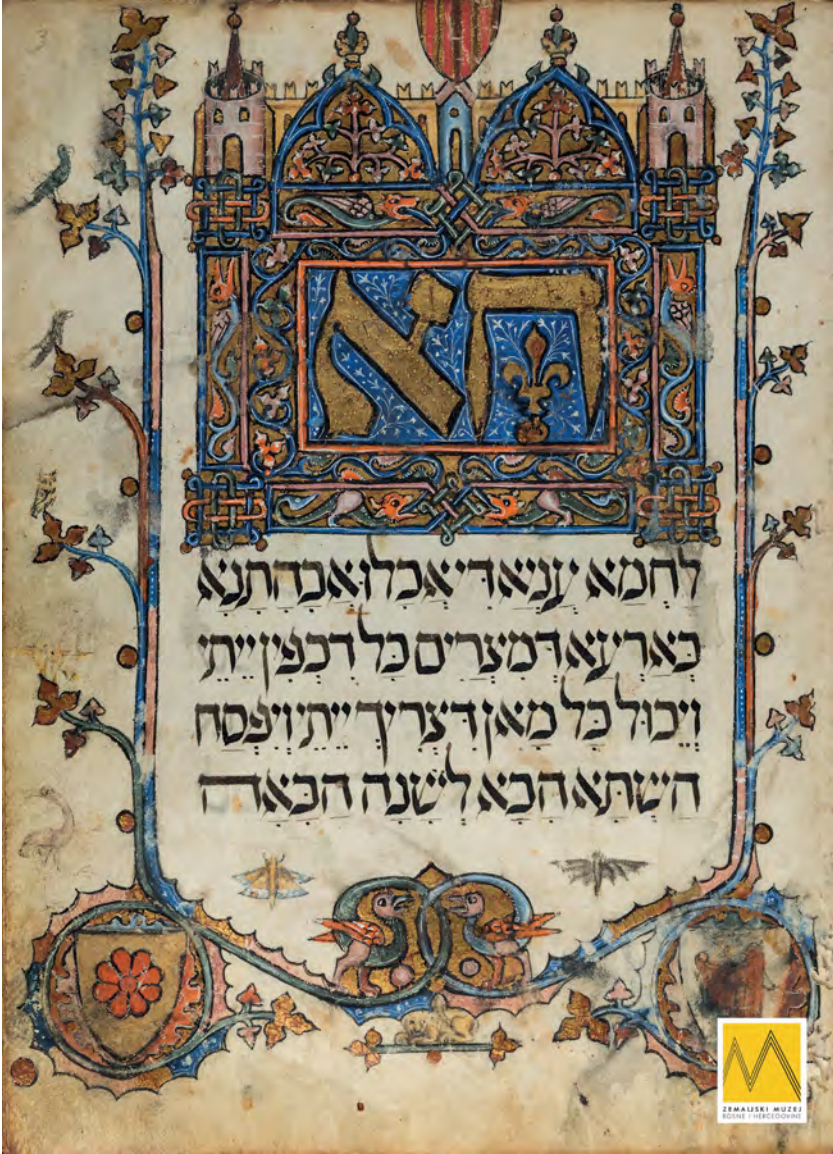 הא
לחמא עניא די אכלו אבהתנא
בארעא דמצרים כל דכפין ייתי
ויכול כל מאן דצריך ייתי ויפסח
השתא הכא לשנה הבאה
ZEMALJSKI MUZEJ
BOSNE I HERCEGOVINE